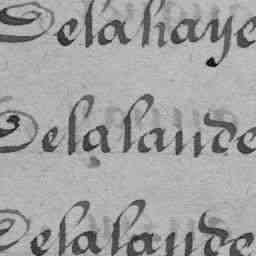 Delahaye
Delalande
Delalande